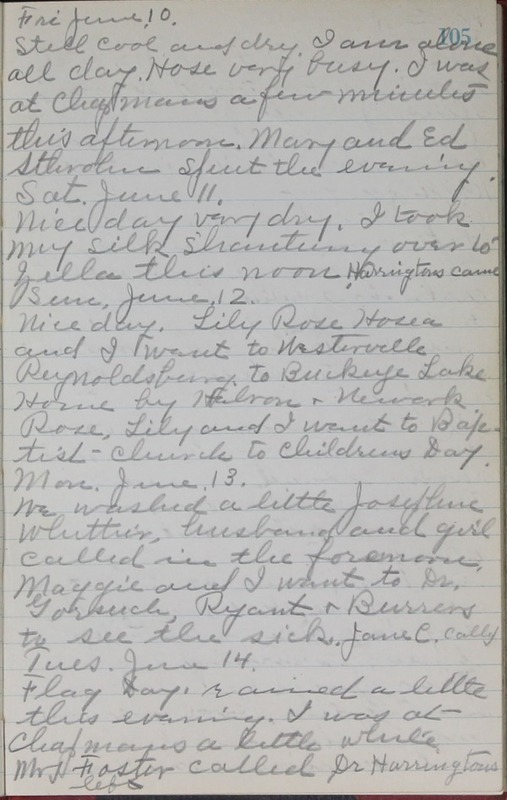 Fri June, 10.
105
Still cool and dry. I am alone
all day. Hose very busy. I was
at Chapmans a few minutes
this afternoon. Mary and Ed
Sthrohm spent the evening.
Sat. June 11.
Nice day very dry. I took
my silk Shantung over to
Zella this noon. Harringtons came
Sun, June, 12.
Nice day. Lily Rose Hosea
and I went to Westerville
Reynoldsburg to Buckeye Lake
Home by Hebron + Newark
Rose, Lily and I went to Bap-
tist - church to Childrens Day.
Mon. June, 13.
We washed a little Josephine
Whittier, husband and girl
called in the forenoon.
Maggie and I went to Dr.
Gorsuch, Ryant + Burrers
to see the sick. Jane C. calls
Tues. June 14.
Flag Day. rained a little
this evening. I was at
Chapmans a little while
Mrs Foster called Dr Harringtons
left